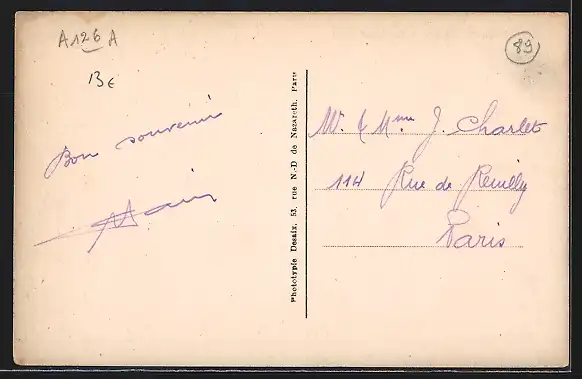 A126A
13€
89
Bon souvenir
Phototypie Desaix, 53, rue N.-D de Nazareth, Paris
Mr. & Mme J. Charlet
114 Rue de Reuilly
Paris